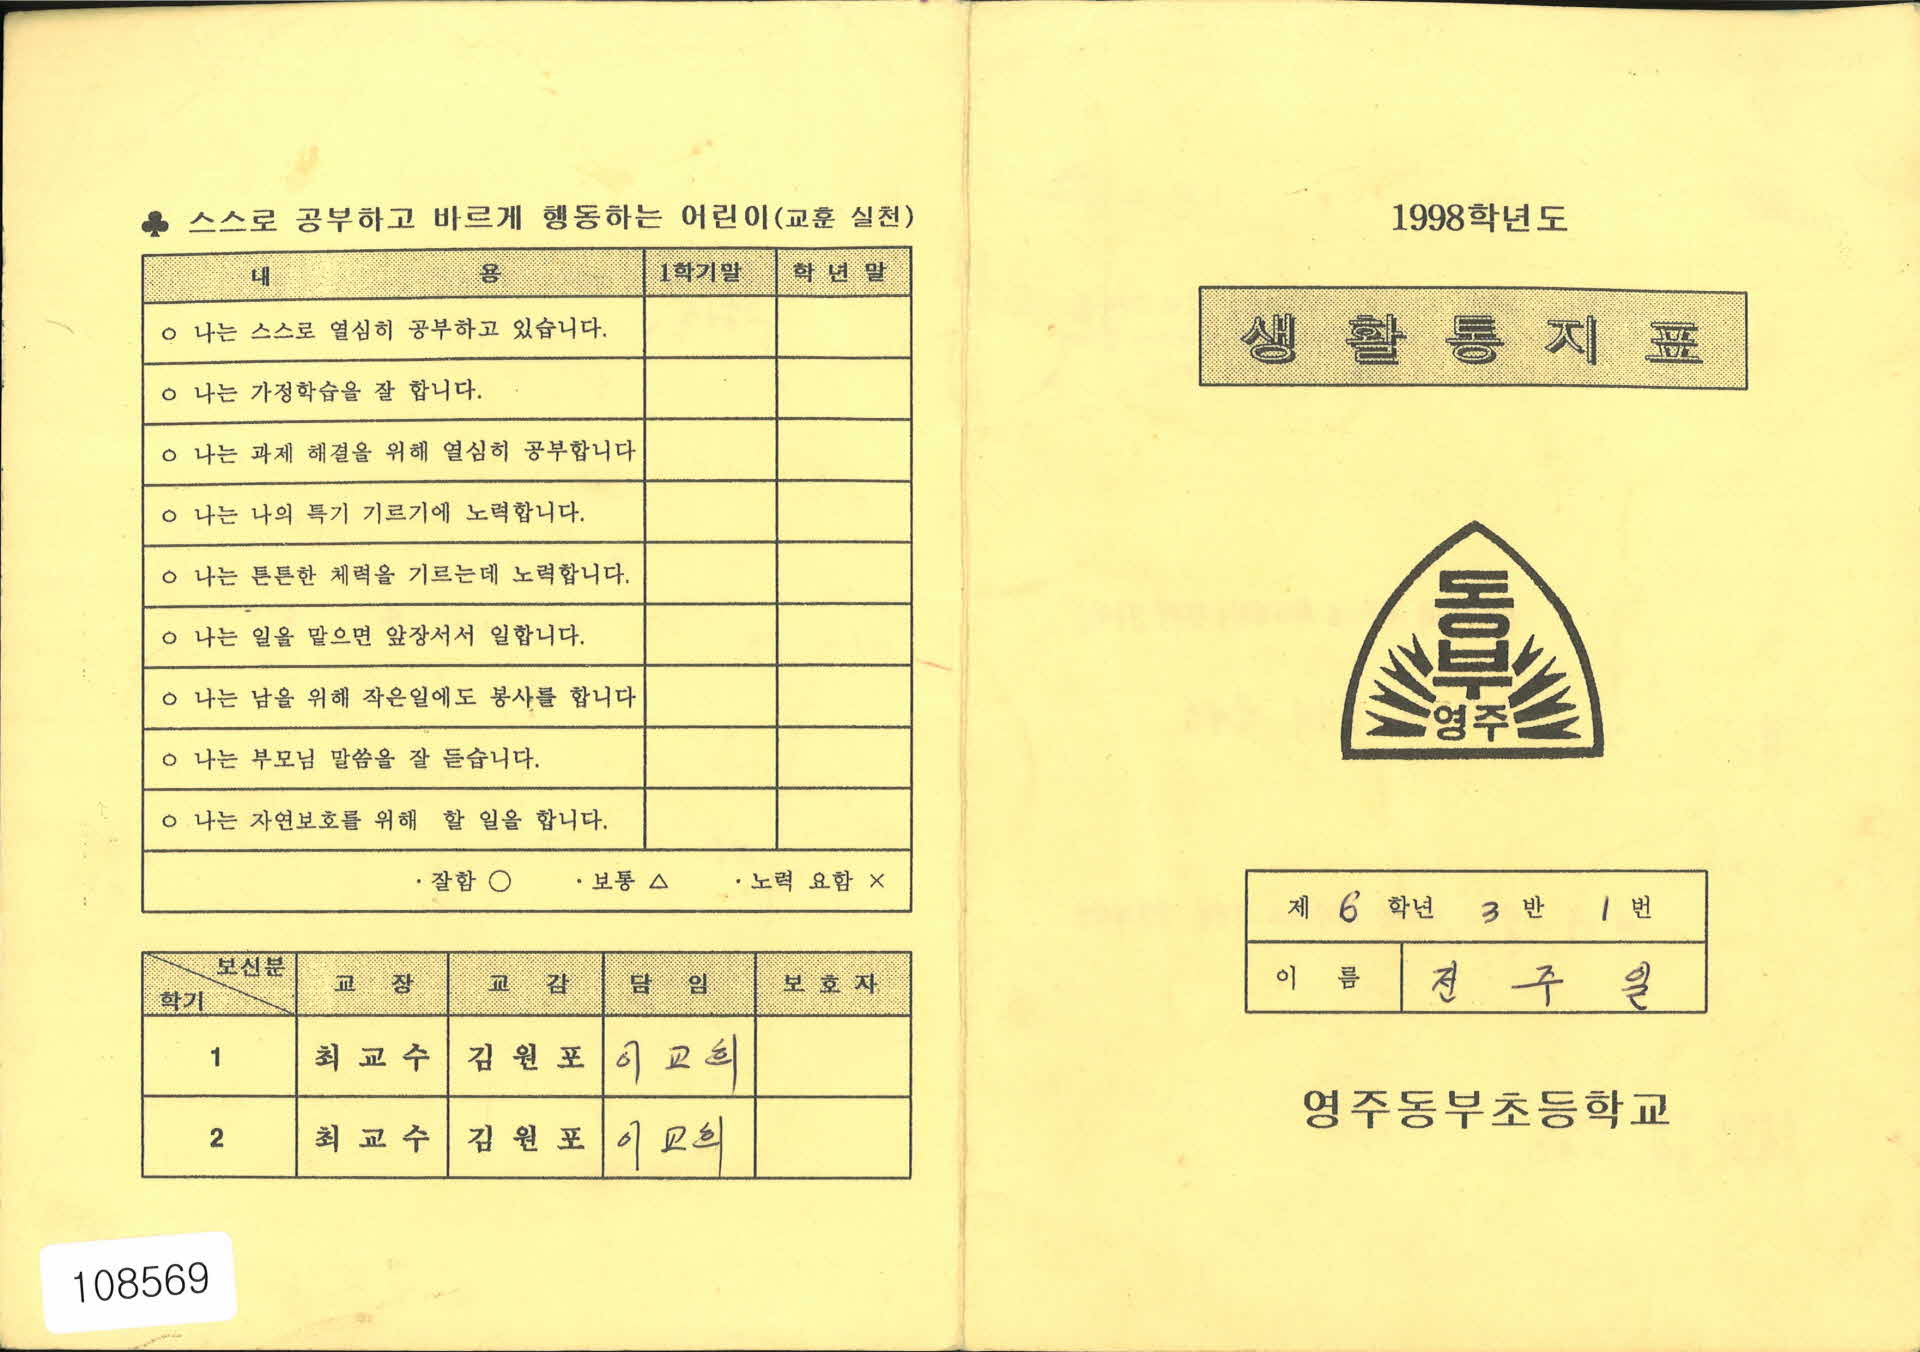 ♣ 스스로 공부하고 바르게 행동하는 어린이(교훈 실천)
내 용 1학기말 학 년 말
○ 나는 스스로 열심히 공부하고 있습니다.
○ 나는 가정학습을 잘 합니다.
○ 나는 과제 해결을 위해 열심히 공부합니다
○ 나는 나의 특기 기르기에 노력합니다.
○ 나는 튼튼한 체력을 기르는데 노력합니다.
○ 나는 일을 맡으면 앞장서서 일합니다.
○ 나는 남을 위해 작은일에도 봉사를 합니다
○ 나는 부모님 말씀을 잘 듣습니다.
○ 나는 자연보호를 위해 할 일을 합니다.
· 잘함 ○ · 보통 △ · 노력 요함 ×
보신분
학기
교 장 교 감 담 임 보 호 자
1 최 교 수 김 원 포 이 교 희
2 최 교 수 김 원 포 이 교 희
108569
1998학년도
생 활 통 지 표
동
부
영주
제 6 학년 3 반 1 번
이 름 전 주 일
영주동부초등학교